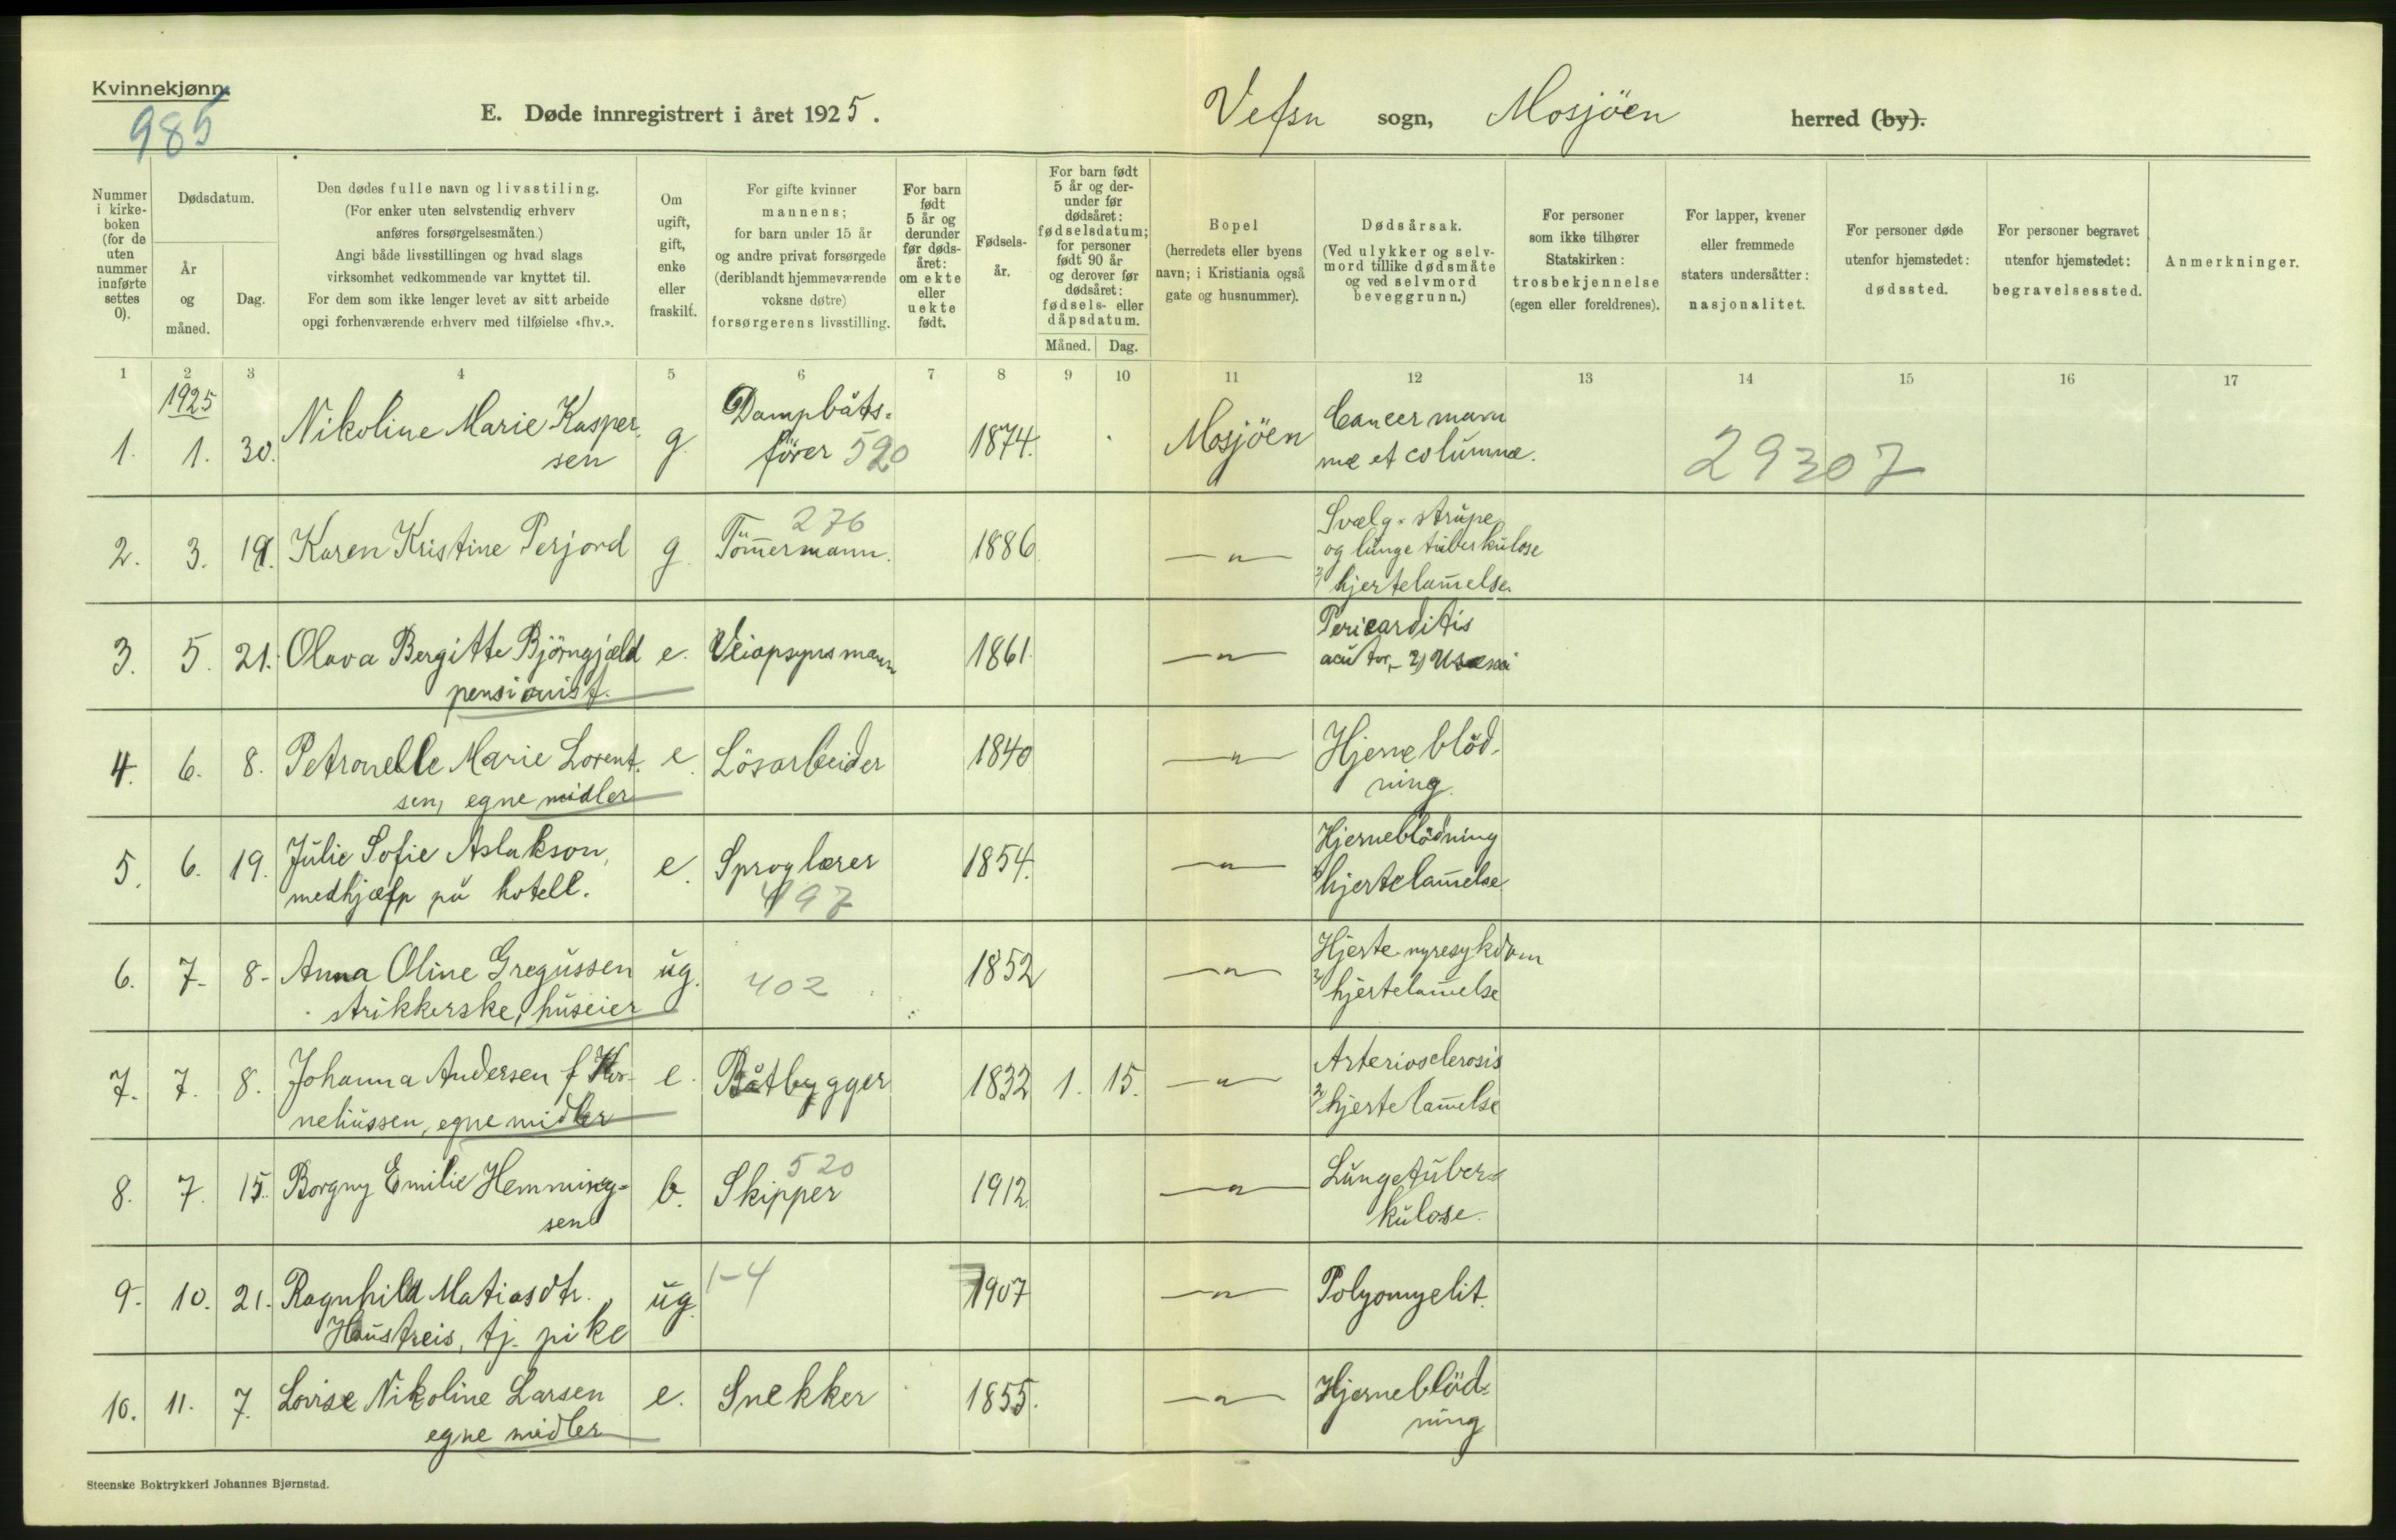 Kvinnekjønn.
985
E. Døde innregistrert i året 1925.
Vefsn sogn, Mosjöen herred (by).
Nummer i kirke- boken (for de uten nummer innførte settes 0).
Dødsdatum.
År og måned.
Dag.
Den dødes fulle navn og livsstiling.
(For enker uten selvstendig erhverv
anføres forsørgelsesmåten.)
Angi både livsstillingen og hvad slags
virksomhet vedkommende var knyttet til.
For dem som ikke lenger levet av sitt arbeide
opgi forhenværende erhverv med tilføielse «fhv.».
Om ugift, gift, enke eller fraskilt.
For gifte kvinner
mannens;
for barn under 15 år
og andre privat forsørgede
(deriblandt hjemmeværende
voksne døtre)
forsørgerens livsstilling.
For barn født 5 år og derunder før døds- året: om ekte eller uekte født.
Fødsels- år.
For barn født 5 år og der- under før dødsåret: fødselsdatum; for personer født 90 år og derover før dødsåret: fødsels- eller dåpsdatum.
Måned. Dag.
Bopel
(herredets eller byens
navn; i Kristiania også
gate og husnummer).
Dødsårsak.
(Ved ulykker og selv-
mord tillike dødsmåte
og ved selvmord
beveggrunn.)
For personer
som ikke tilhører
Statskirken:
trosbekjennelse
(egen eller foreldrenes).
For lapper, kvener
eller fremmede
staters undersåtter:
nasjonalitet.
For personer døde
utenfor hjemstedet:
dødssted.
For personer begravet
utenfor hjemstedet:
begravelsessted.
Anmerkninger.
1 2 3 4 5 6 7 8 9 10 11 12 13 14 15 16 17
1925
1. 1. 30. Nikoline Marie Kasper- g. Dampbåts- 1874. Mosjöen Cancer mam
sen fører 520 mæ et columnæ. 29307
276
2. 3. 19. Karen Kristine Perjord g. Tömmermann. 1886 —"— Svælg- strupe
og lunge tuberkulose
2) hjertelammelse.
3. 5. 21. Olava Bergitte Björngjæld e. Veiopsynsmann 1861 —"— Pericarditis
pensionist.
4. 6. 8. Petronelle Marie Lorent- e. Lösarbeider 1840 —"— Hjerneblöd-
sen, egne midler ning.
5. 6. 19. Julie Sofie Aslakson, e. Sproglærer 1854. —"— Hjerneblödning
medhjælp på hotell. 497 2) hjertelammelse
6. 7. 8. Anna Oline Gregussen ug. 402 1852 —"— Hjerte nyresykdom
strikkerske, huseier 2) hjertelammelse
7. 7. 8. Johanna Andersen f Kor- e. Båtbygger 1832 1. 15. —"— Arteriosclerosis
neliussen, egne midler 2) hjertelammelse
520
8. 7. 15. Borgny Emilie Hemming- b. Skipper 1912. —"— Lungetuber-
sen kulose.
9. 10. 21. Ragnhild Matiasdtr. ug. 1-4 1907 —"— Polyomyelit.
Haustreis, tj. pike
10. 11. 7. Lovise Nikoline Larsen e. Snekker 1855. —"— Hjerneblöd-
egne midler ning
Steenske Boktrykkeri Johannes Bjørnstad.